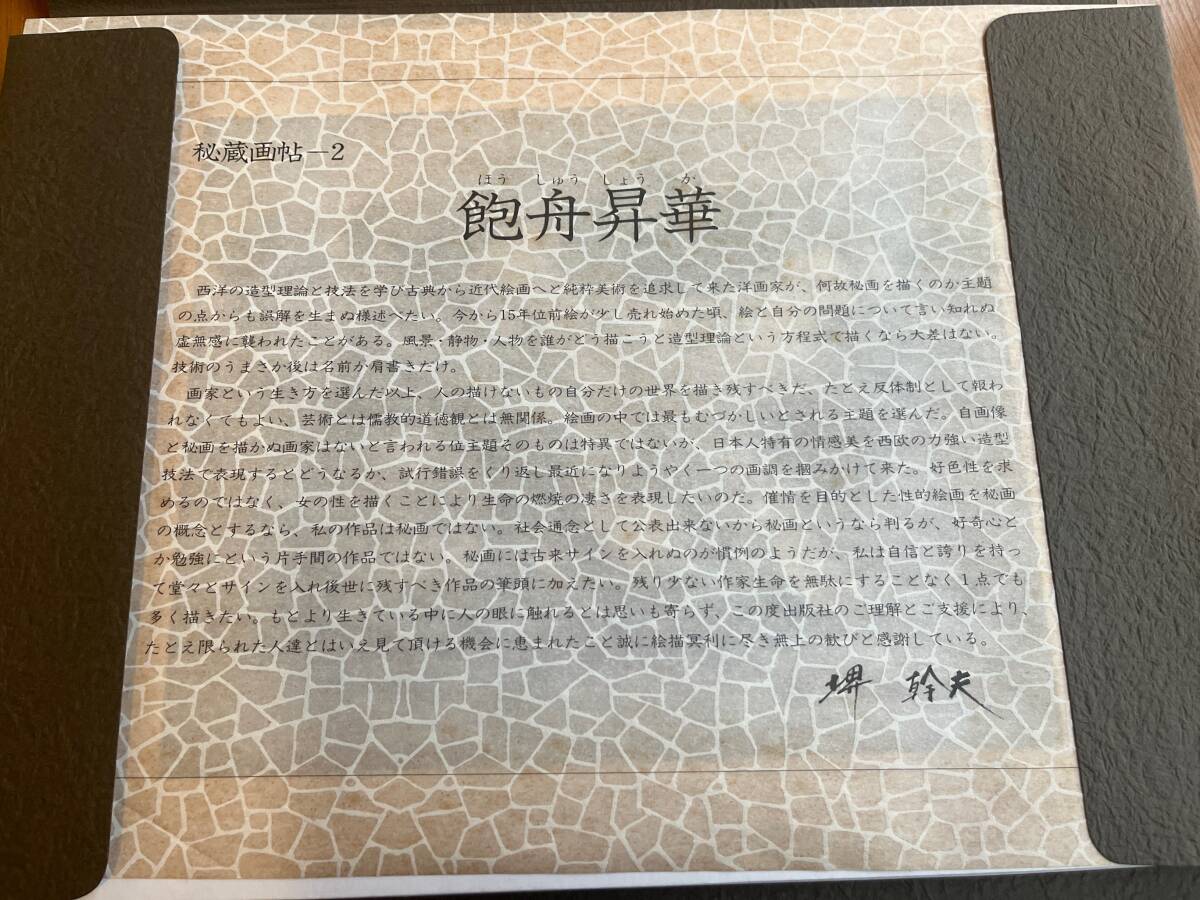 秘蔵画帖―2
ほう しゅう しょう か
飽舟昇華
西洋の造型理論と技法を学び古典から近代絵画へと純粋美術を追求して来た洋画家が、何故秘画を描くのか主題
の点からも誤解を生まぬ様述べたい。今から15年位前絵が少し売れ始めた頃、絵と自分の問題について言い知れぬ
虚無感に襲われたことがある。風景・静物・人物を誰がどう描こうと造型理論という方程式で描くなら大差はない。
技術のうまさか後は名前か肩書きだけ。
画家という生き方を選んだ以上、人の描けないもの自分だけの世界を描き残すべきだ、たとえ反体制として報わ
れなくてもよい、芸術とは儒教的道徳観とは無関係。絵画の中では最もむづかしいとされる主題を選んだ。自画像
と秘画を描かぬ画家はないと言われる位主題そのものは特異ではないが、日本人特有の情感美を西欧の力強い造型
技法で表現するとどうなるか、試行錯誤をくり返し最近になりようやく一つの画調を掴みかけて来た。好色性を求
めるのではなく、女の性を描くことにより生命の燃焼の凄さを表現したいのだ。催情を目的とした性的絵画を秘画
の概念とするなら、私の作品は秘画ではない。社会通念として公表出来ないから秘画というなら判るが、好奇心と
か勉強にという片手間の作品ではない、秘画には古来サインを入れぬのが慣例のようだが、私は自信と誇りを持っ
て堂々とサインを入れ後世に残すべき作品の筆頭に加えたい。残り少ない作家生命を無駄にすることなく1点でも
多く描きたい。もとより生きている中に人の眼に触れるとは思いも寄らず、この度出版社のご理解とご支援により、
たとえ限られた人達とはいえ見て頂ける機会に恵まれたこと誠に絵描冥利に尽き無上の歓びと感謝している。
堺 幹夫